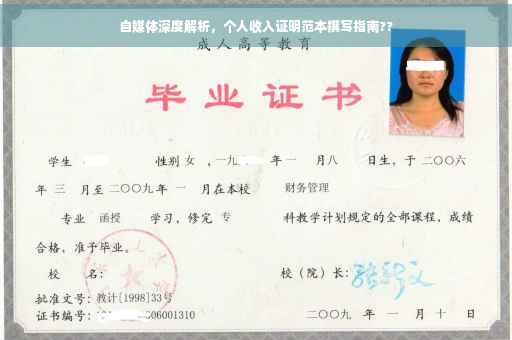 自媒体深度解析，个人收入证明范本撰写指南??
成人高等教育
毕业证书
学生 性别 女 ，一九 年 一 月八 日生，于 二〇〇六
年 三 月至 二〇〇九 年 一 月在本校 财务管理
专业 函授 学习，修完 专 科教学计划规定的全部课程，成绩
合格，准予毕业。
校 名： 校（院）长：
批准文号：教计[1998]33号
证书编号： 06001310 二〇〇九 年 一 月 十 日